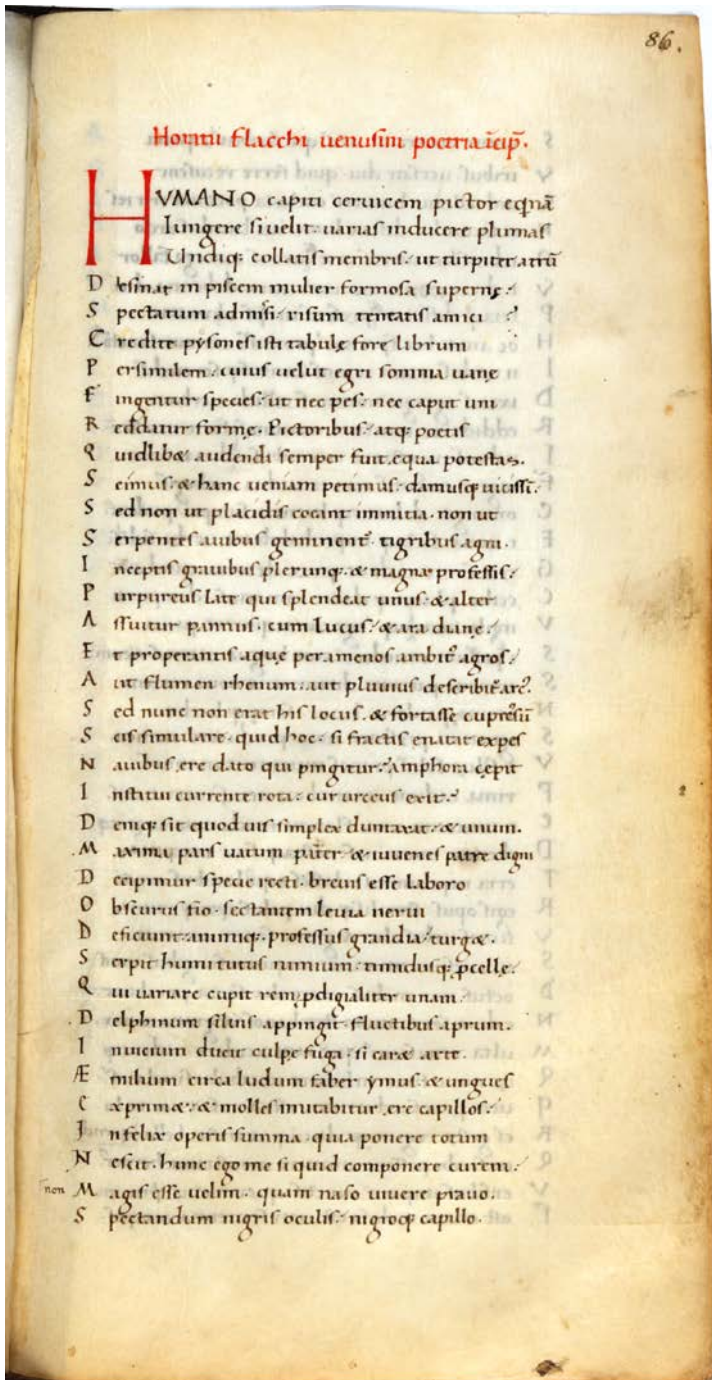 86.
Horatii flacchi uenusini poetria icip̄.
HVMANO capiti ceruicem pictor eqnā
Iungere si uelit. uarias inducere plumas
Undiq; collatis membris. ut turpiter atrū
Desinat in piscem mulier formosa supernę.
Spectatum admisi risum teneatis amici?
Credite pysones isti tabulę fore librum
Persimilem. cuius uelut egri somnia uanę
Fingentur species. ut nec pes. nec caput uni
Reddatur formę. Pictoribus. atq; poetis
Quidlib& audendi semper fuit equa potestas.
Scimus. & hanc ueniam petimus. damusq; uicissī.
Sed non ut placidis coeant immitia. non ut
Serpentes auibus geminent̄. tigribus agni.
Inceptis grauibus plerunq;. & magna professis.
Purpureus late qui splendeat unus. & alter
Assuitur pannus. cum lucus. & ara diane.
Et properantis aque per amenos ambit᷒ agros.
Aut flumen rhenum. aut pluuius describit᷒ arc᷒.
Sed nunc non erat his locus. & fortasse cupressū
Scis simulare. quid hoc. si fractis enatat expes
Nauibus ere dato qui pingitur. amphora cępit
Institui currente rota. cur urceus exit.
Deniq; sit quod uis simplex dumtaxat. & unum.
Maxima pars uatum pater. & iuuenes patre digni
Decipimur specie recti. breuis esse laboro
Obscurus fio. sectantem leuia nerui
Deficiunt. animiq;. professus grandia. turg&.
Serpit humi tutus nimium. timidusq; p̄cellę.
Qui uariare cupit rem pdigialiter unam.
Delphinum siluis appingit. fluctibus aprum.
Inuicium ducit culpe fuga. si car& arte.
Æmilium circa ludum faber ymus. & ungues
Cexprim&. & molles imitabitur ere capillos.
Infelix operis summa. quia ponere totum
Nesciet. hunc ego me si quid componere curem.
non Magis esse uelim. quam naso uiuere prauo.
Spectandum nigris oculis. nigroq; capillo.